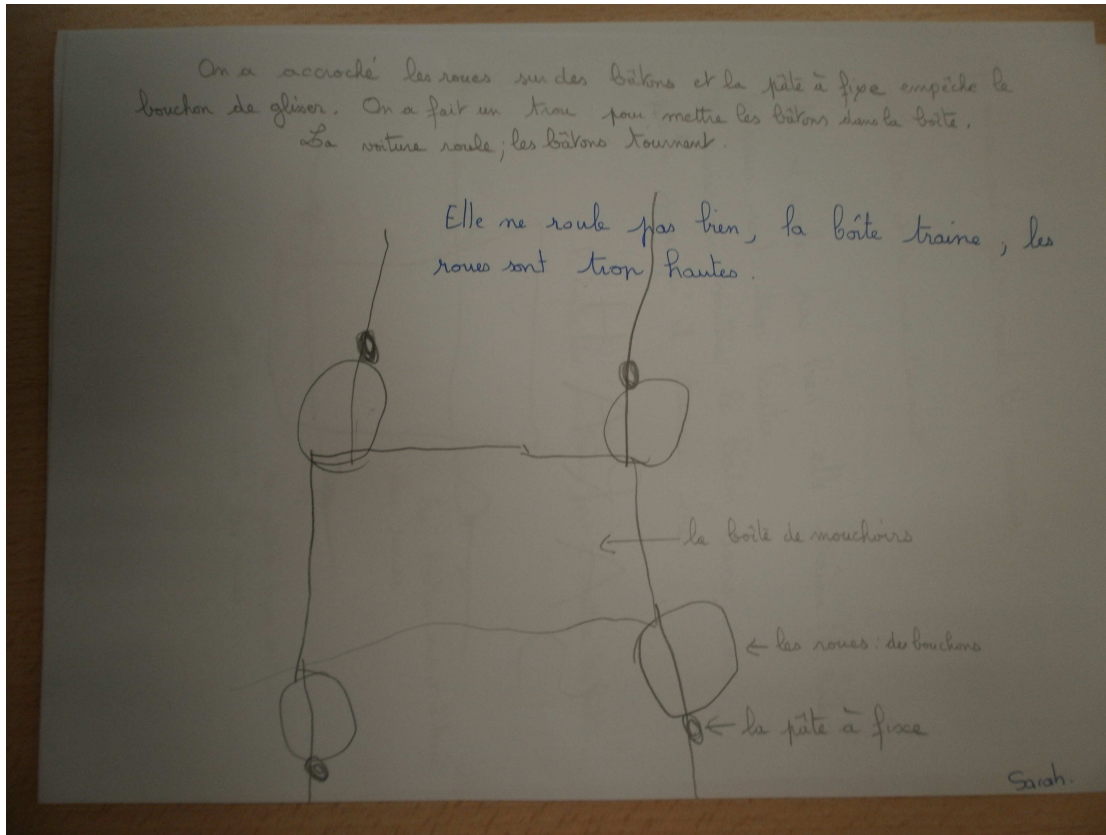 On a accroché les roues sur des bâtons et la pâte à fixe empêche le
bouchon de glisser. On a fait un trou pour mettre les bâtons dans la boîte.
La voiture roule, les bâtons tournent.
Elle ne roule pas bien, la boîte traine, les
roues sont trop hautes.
← la boîte de mouchoirs
← les roues : des bouchons
← la pâte à fixe
Sarah.